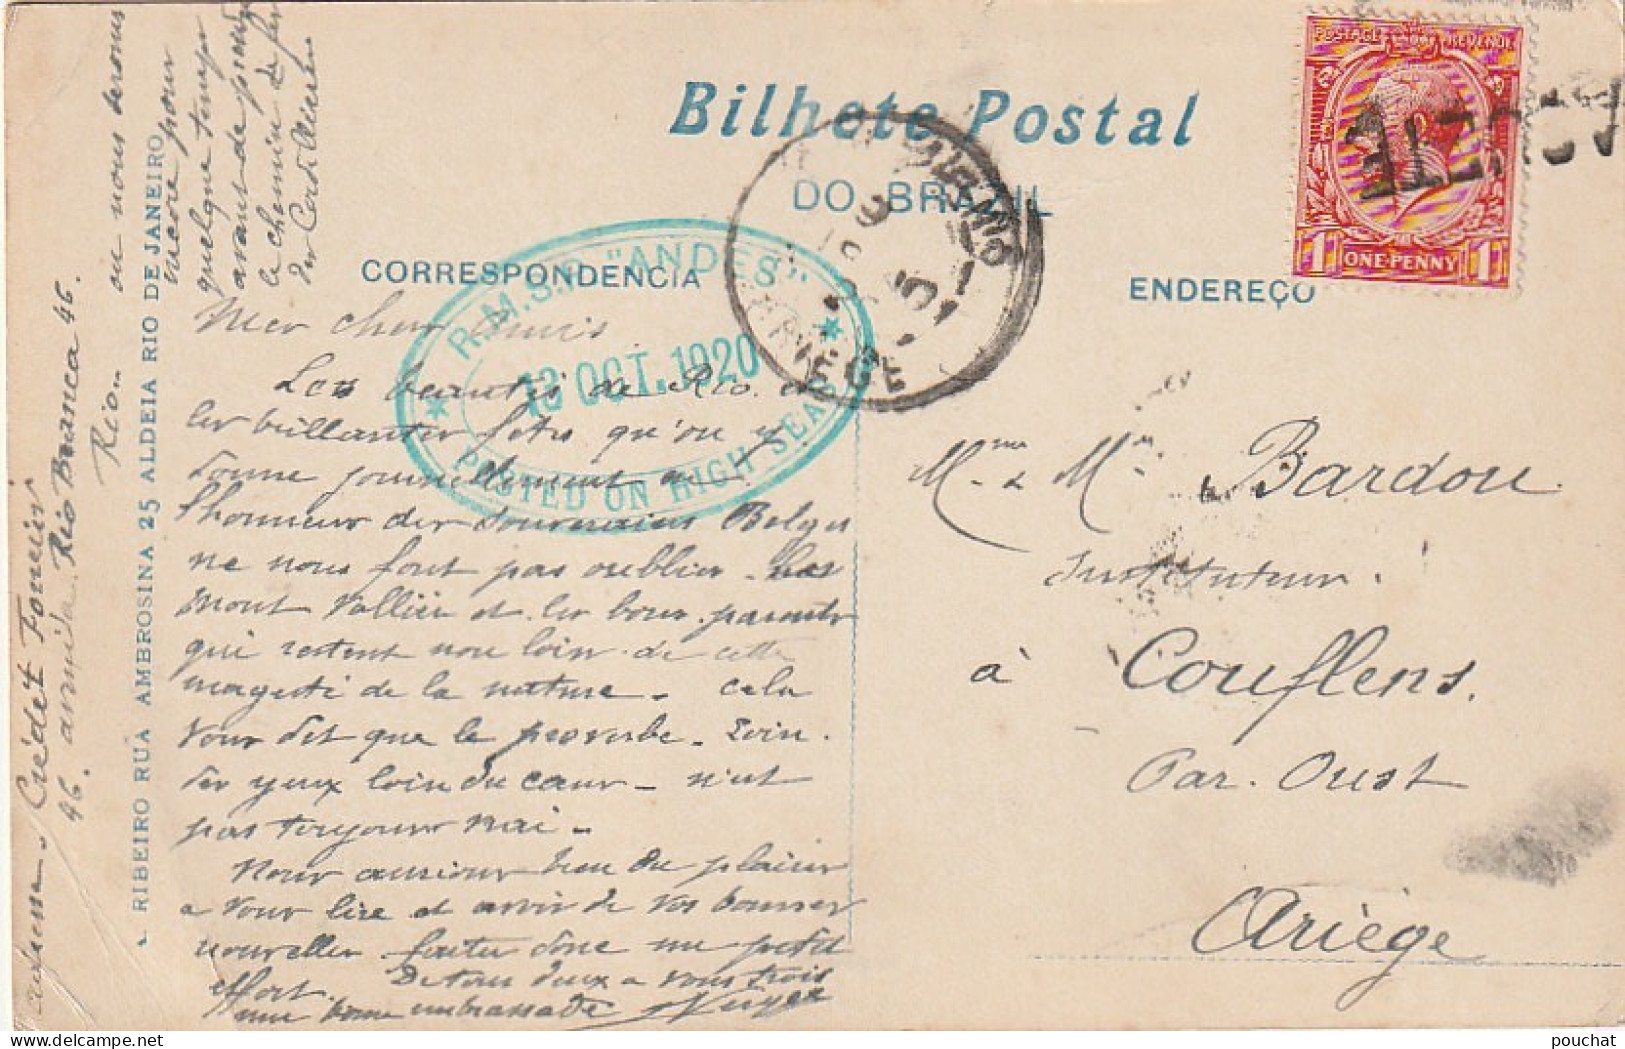 Bilhete Postal
DO BRASIL
CORRESPONDENCIA
ENDEREÇO
POSTAGE REVENUE
1 ONE·PENNY 1
R.M.S.P. "ANDES"
13 OCT. 1920
POSTED ON HIGH SEAS
A. RIBEIRO RUA AMBROSINA 25 ALDEIA RIO DE JANEIRO
Mes chers amis
Les beautés de Rio. et
les brillantes fetes qu'on y
donne journellement en
l'honneur des souverains Belges
ne nous font pas oublier les
Mont Vallier et les bons parents
qui restent non loin de cette
magesté de la nature. Cela
vous dit que le proverbe. Loin.
des yeux loin du cœur. n'est
pas toujours vrai.
Nous aurions bien du plaisir
a vous lire et avoir de vos bonnes
nouvelles faites donc un petit
effort. De tous deux a vous trois
une bonne embrassade
Mme & Mr Bardou
Instituteur.
à Couflens.
Par. Oust
Ariège
Crédit Foncier
46. avenida Rio Branco 46.
Rio..
ou nous serons
encore pour
quelque temps
avant de prendre
le chemin de fer
des Cordillières
pouchat